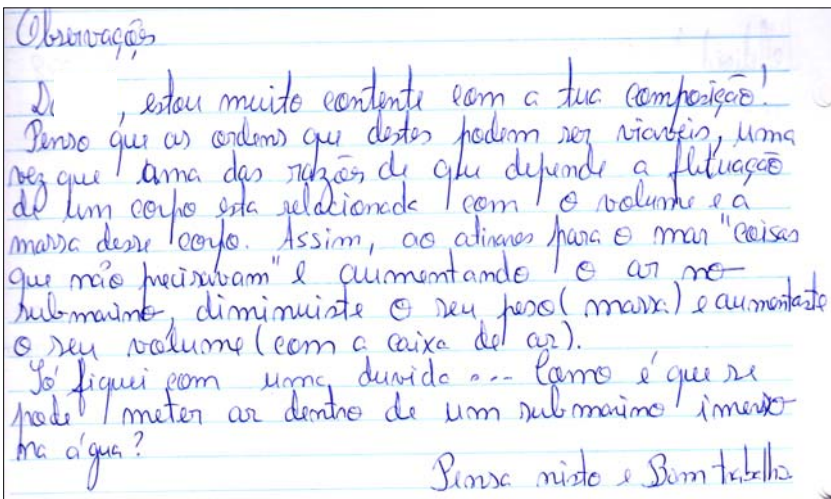 Observações
D , estou muito contente com a tua composição!
Penso que as ordens que destes podem ser viavéis, uma
vez que uma das razões de que depende a flutuação
de um corpo esta relacionada com o volume e a
massa desse corpo. Assim, ao atirares para o mar "coisas
que não precisavam" e aumentando o ar no
submarino, diminuiste o seu peso (massa) e aumentaste
o seu volume (com a caixa de ar).
Só fiquei com uma duvida... Como é que se
pode meter ar dentro de um submarino imerso
na água?
Pensa nisto e Bom trabalho